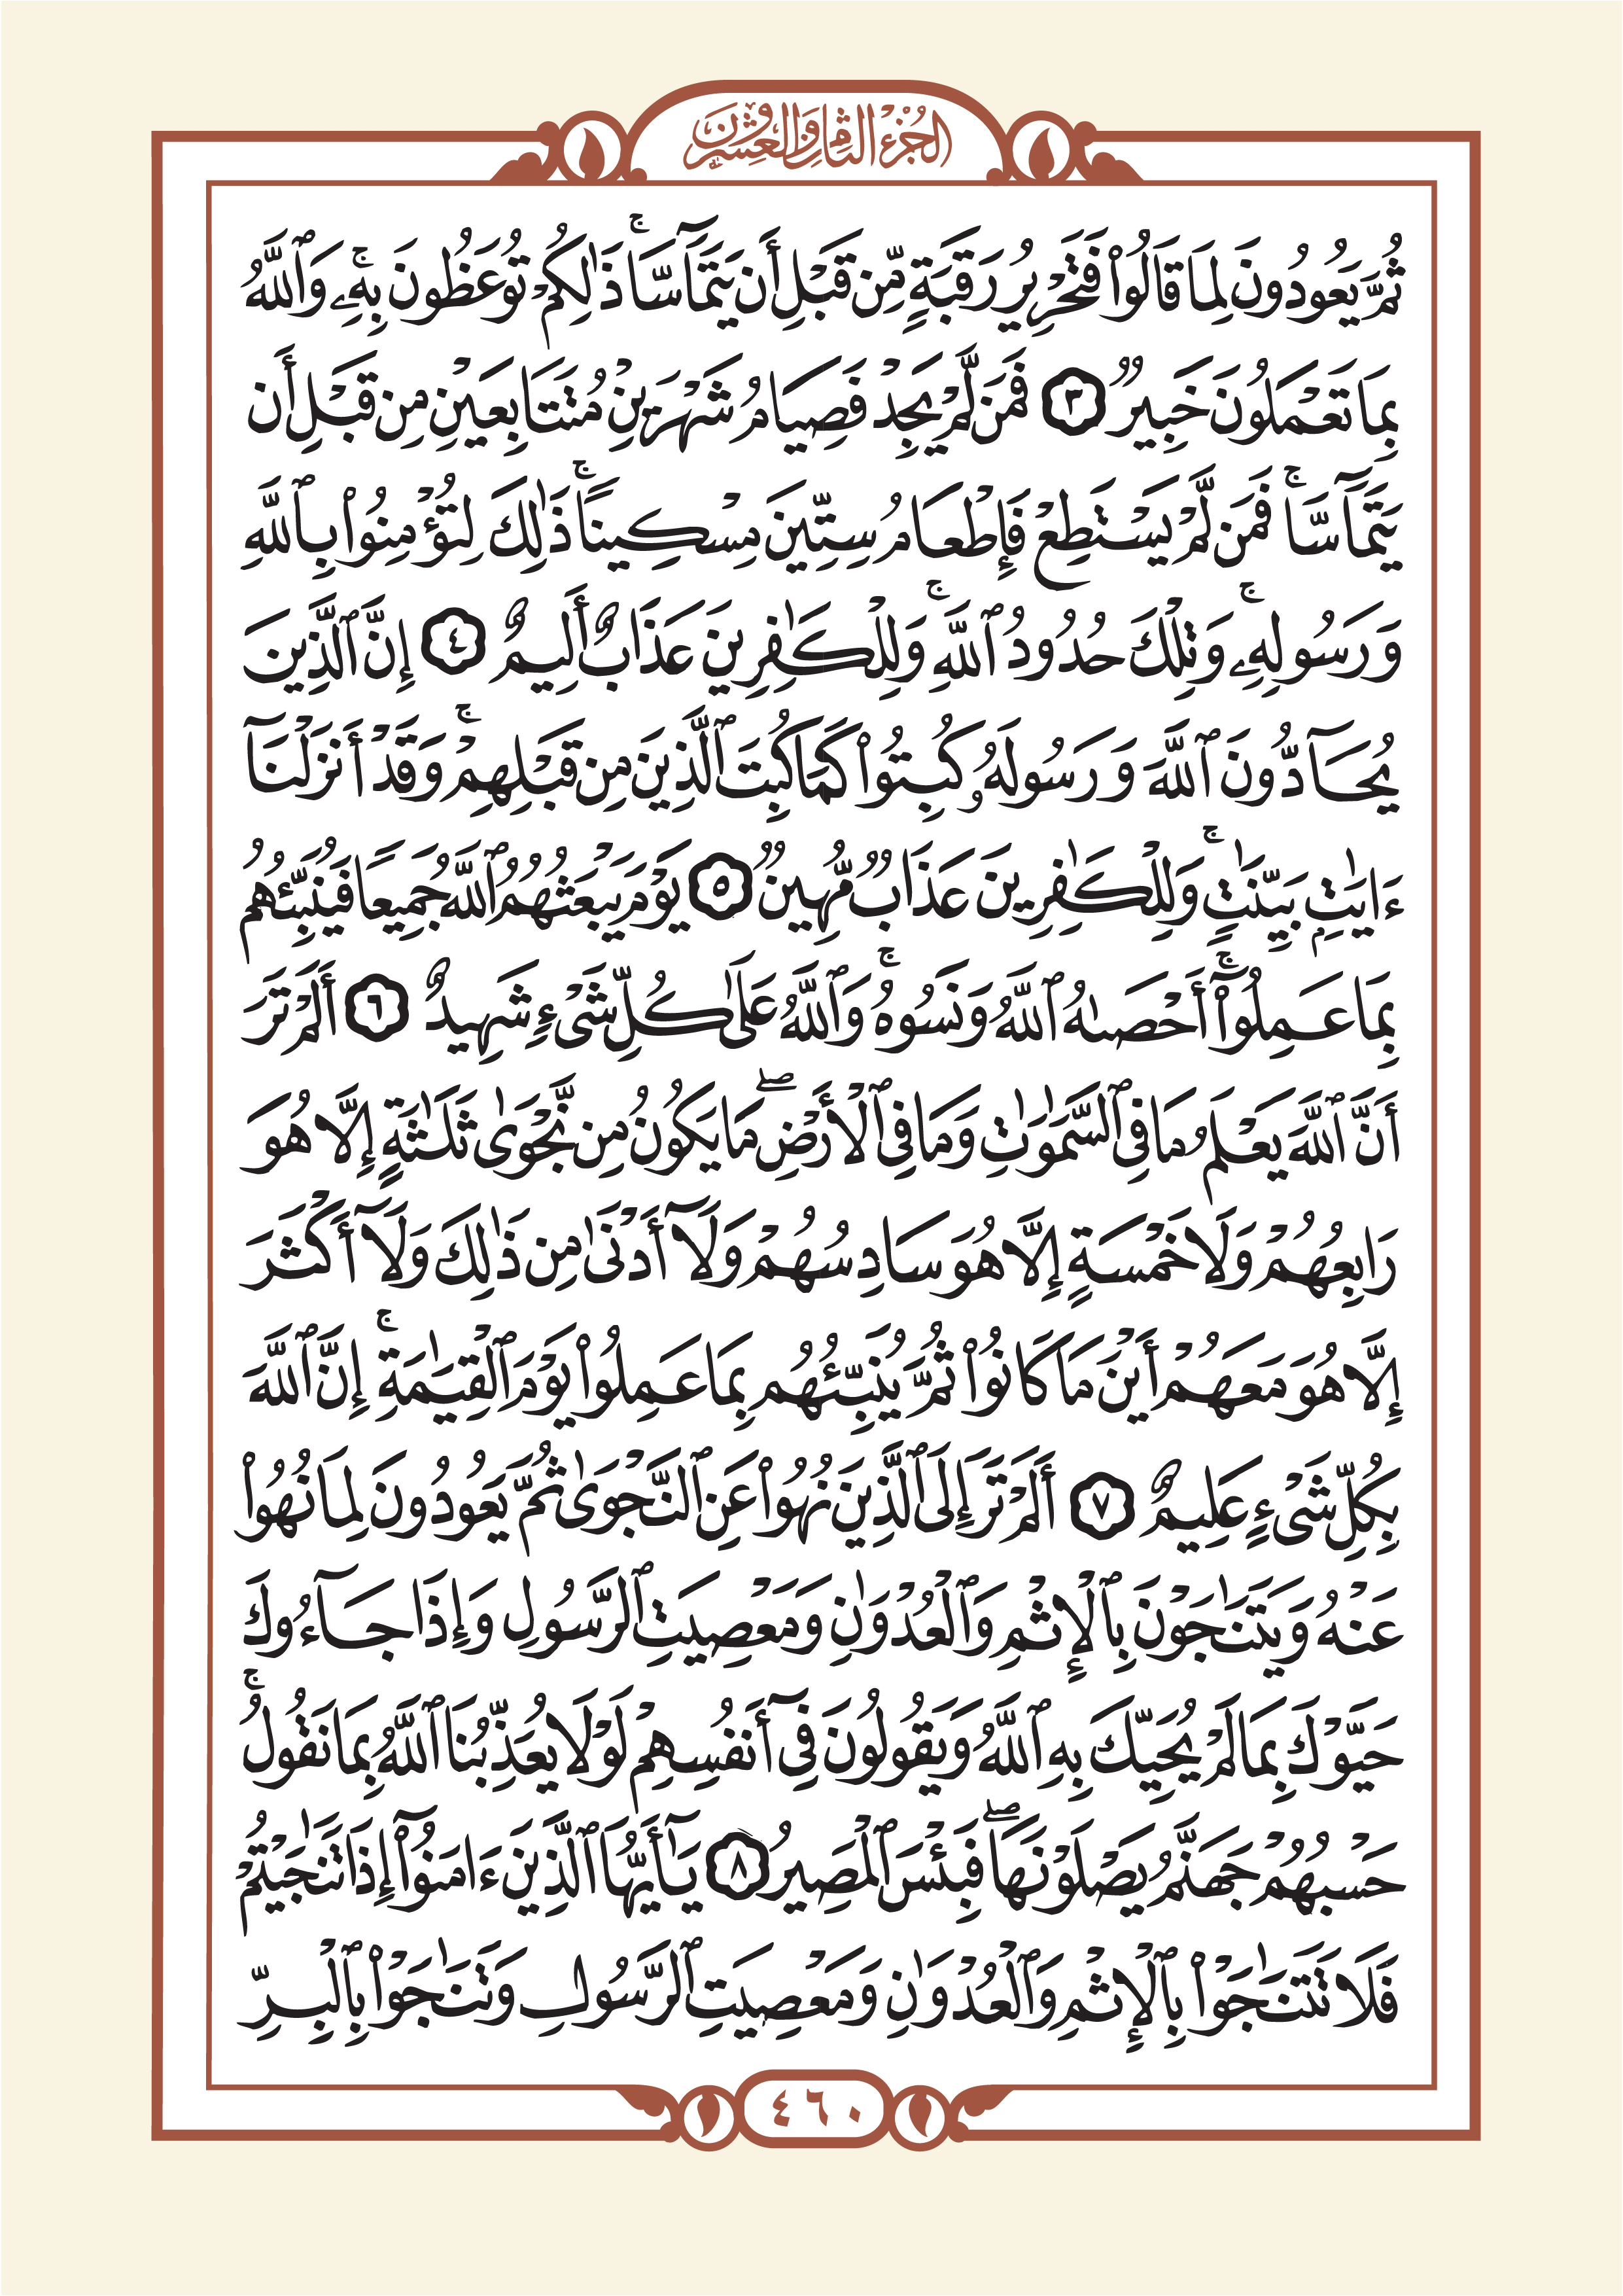 الجزء الثامن والعشرون
ثُمَّ يَعُودُونَ لِمَا قَالُوا۟ فَتَحْرِيرُ رَقَبَةٍ مِّن قَبْلِ أَن يَتَمَآسَّا ۚ ذَٰلِكُمْ تُوعَظُونَ بِهِۦ ۚ وَٱللَّهُ
بِمَا تَعْمَلُونَ خَبِيرٌ ٣ فَمَن لَّمْ يَجِدْ فَصِيَامُ شَهْرَيْنِ مُتَتَابِعَيْنِ مِن قَبْلِ أَن
يَتَمَآسَّا ۚ فَمَن لَّمْ يَسْتَطِعْ فَإِطْعَامُ سِتِّينَ مِسْكِينًا ۚ ذَٰلِكَ لِتُؤْمِنُوا۟ بِٱللَّهِ
وَرَسُولِهِۦ ۚ وَتِلْكَ حُدُودُ ٱللَّهِ ۚ وَلِلْكَٰفِرِينَ عَذَابٌ أَلِيمٌ ٤ إِنَّ ٱلَّذِينَ
يُحَآدُّونَ ٱللَّهَ وَرَسُولَهُۥ كُبِتُوا۟ كَمَا كُبِتَ ٱلَّذِينَ مِن قَبْلِهِمْ ۚ وَقَدْ أَنزَلْنَآ
ءَايَٰتٍۭ بَيِّنَٰتٍ ۚ وَلِلْكَٰفِرِينَ عَذَابٌ مُّهِينٌ ٥ يَوْمَ يَبْعَثُهُمُ ٱللَّهُ جَمِيعًا فَيُنَبِّئُهُم
بِمَا عَمِلُوٓا۟ ۚ أَحْصَىٰهُ ٱللَّهُ وَنَسُوهُ ۚ وَٱللَّهُ عَلَىٰ كُلِّ شَىْءٍ شَهِيدٌ ٦ أَلَمْ تَرَ
أَنَّ ٱللَّهَ يَعْلَمُ مَا فِى ٱلسَّمَٰوَٰتِ وَمَا فِى ٱلْأَرْضِ ۖ مَا يَكُونُ مِن نَّجْوَىٰ ثَلَٰثَةٍ إِلَّا هُوَ
رَابِعُهُمْ وَلَا خَمْسَةٍ إِلَّا هُوَ سَادِسُهُمْ وَلَآ أَدْنَىٰ مِن ذَٰلِكَ وَلَآ أَكْثَرَ
إِلَّا هُوَ مَعَهُمْ أَيْنَ مَا كَانُوا۟ ثُمَّ يُنَبِّئُهُم بِمَا عَمِلُوا۟ يَوْمَ ٱلْقِيَٰمَةِ ۚ إِنَّ ٱللَّهَ
بِكُلِّ شَىْءٍ عَلِيمٌ ٧ أَلَمْ تَرَ إِلَى ٱلَّذِينَ نُهُوا۟ عَنِ ٱلنَّجْوَىٰ ثُمَّ يَعُودُونَ لِمَا نُهُوا۟
عَنْهُ وَيَتَنَٰجَوْنَ بِٱلْإِثْمِ وَٱلْعُدْوَٰنِ وَمَعْصِيَتِ ٱلرَّسُولِ وَإِذَا جَآءُوكَ
حَيَّوْكَ بِمَا لَمْ يُحَيِّكَ بِهِ ٱللَّهُ وَيَقُولُونَ فِىٓ أَنفُسِهِمْ لَوْلَا يُعَذِّبُنَا ٱللَّهُ بِمَا نَقُولُ ۚ
حَسْبُهُمْ جَهَنَّمُ يَصْلَوْنَهَا ۖ فَبِئْسَ ٱلْمَصِيرُ ٨ يَٰٓأَيُّهَا ٱلَّذِينَ ءَامَنُوٓا۟ إِذَا تَنَٰجَيْتُمْ
فَلَا تَتَنَٰجَوْا۟ بِٱلْإِثْمِ وَٱلْعُدْوَٰنِ وَمَعْصِيَتِ ٱلرَّسُولِ وَتَنَٰجَوْا۟ بِٱلْبِرِّ
٤٦٠